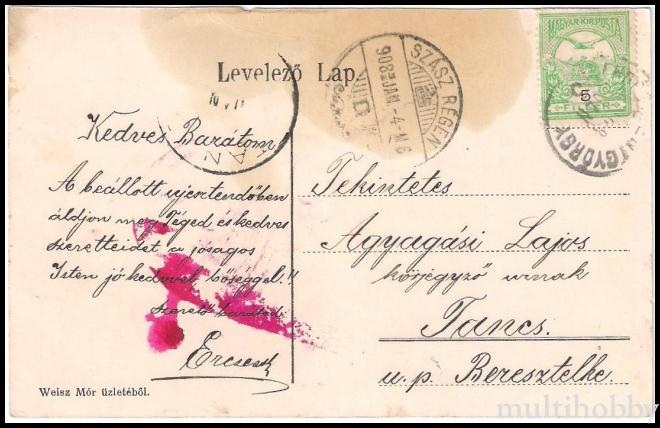 MAGYAR KIR. POSTA
5
FILLÉR
Levelező Lap.
SZÁSZ RÉGEN
908 JAN -4-M 6
GYÖRGY
Kedves Barátom
A beállott ujesztendőben
áldjon meg Téged és kedves
szeretteidet a jóságos
Isten jó kedvvel, bőséggel!!
szerető barátod:
Tekintetes
Agyagási Lajos
körjegyző urnak
Tancs.
u. p. Beresztelke.
Weisz Mór üzletéből.
multihobby